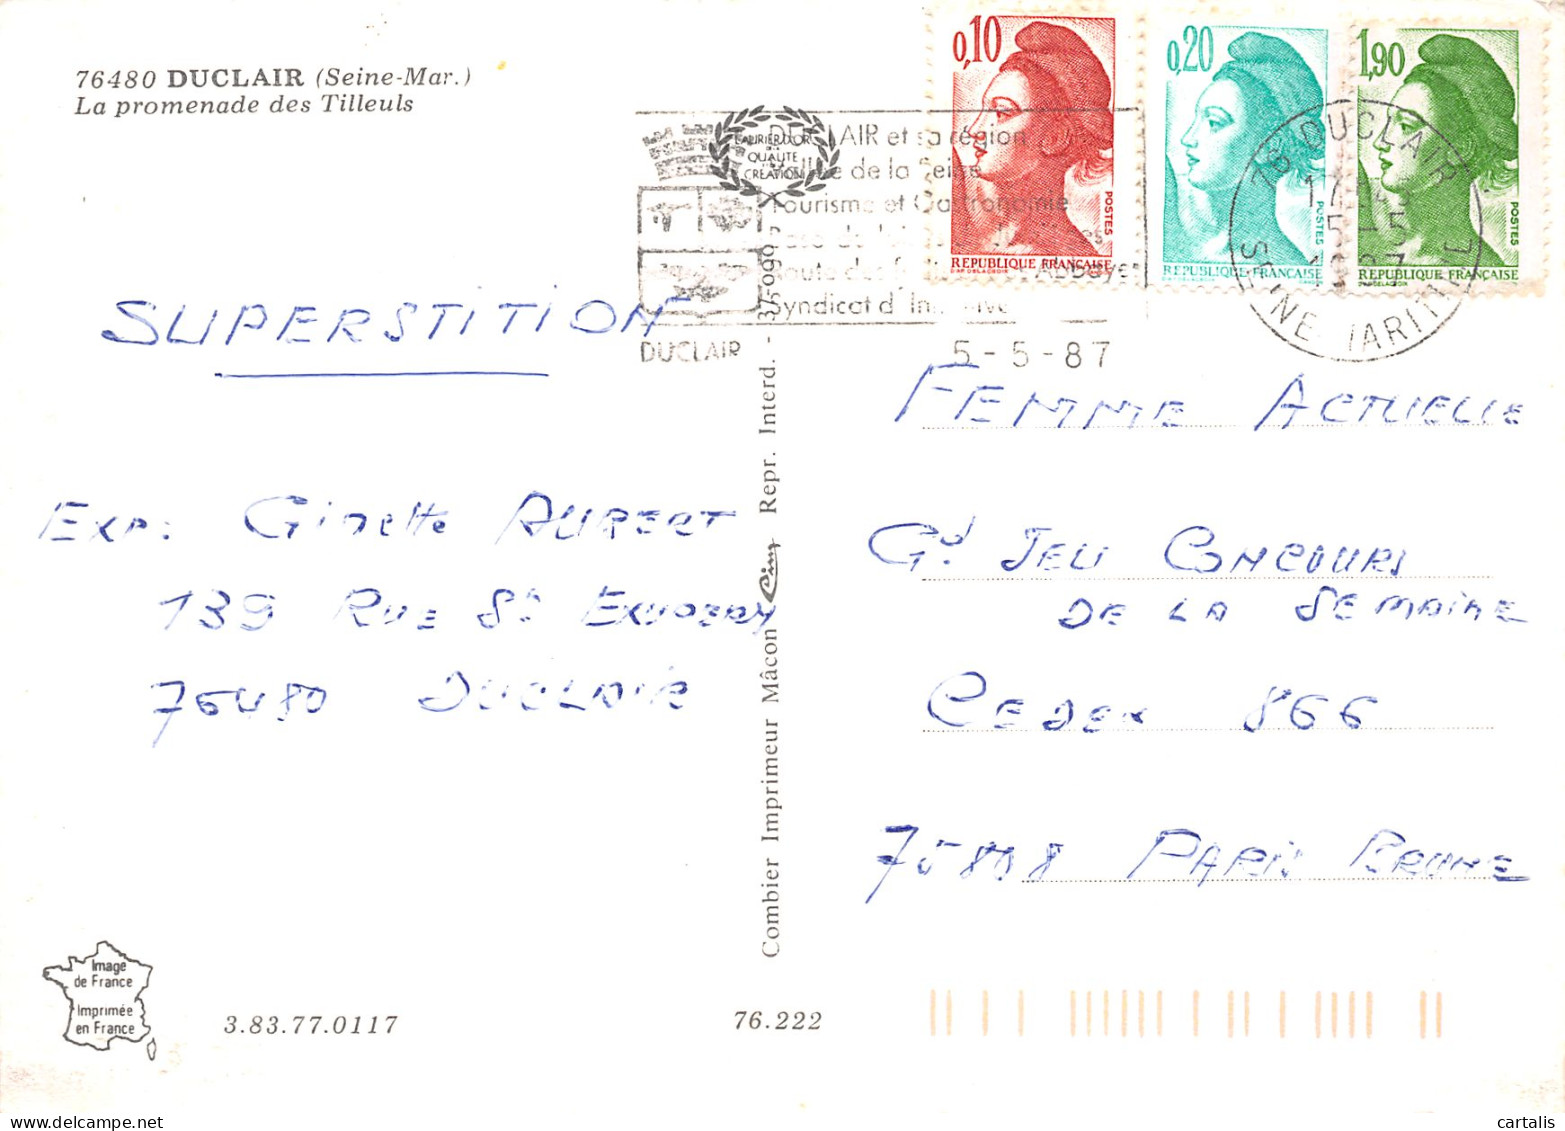 76480 DUCLAIR (Seine-Mar.)
La promenade des Tilleuls
0,10
REPUBLIQUE FRANÇAISE
POSTES
0,20
REPUBLIQUE FRANÇAISE
POSTES
1,90
REPUBLIQUE FRANÇAISE
POSTES
LAURIER D'OR
QUALITÉ
CRÉATION
DUCLAIR et sa région
de la Seine
Tourisme et Gastronomie
Route des Abbayes
Syndicat d'Initiative
DUCLAIR
5-5-87
76 DUCLAIR
SEINE MARITIME
SUPERSTITION
EXP: Ginette AUBERT
139 RUE St EXUPERY
76480 DUCLAIR
FEMME ACTUELLE
Gd JEU CONCOURS
DE LA SEMAINE
CEDEX 866
75808 PARIS BRUNE
Combier Imprimeur Mâcon Cim Repr. Interd.
Image
de France
Imprimée
en France
3.83.77.0117
76.222
cartalis